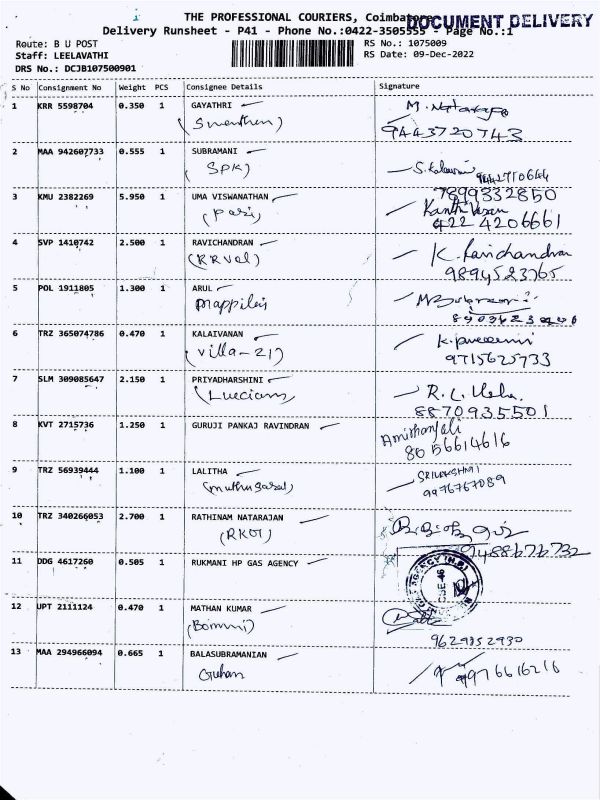 THE PROFESSIONAL COURIERS, Coimbatore
DOCUMENT DELIVERY
Delivery Runsheet - P41 - Phone No.:0422-3505555 - Page No.:1
Route: B U POST
RS No.: 1075009
Staff: LEELAVATHI
RS Date: 09-Dec-2022
DRS No.: DCJB107500901
S No Consignment No Weight PCS Consignee Details Signature
1 KRR 5598704 0.350 1 GAYATHRI
9443720743
2 MAA 942607733 0.555 1 SUBRAMANI
(SPK)
7899332850
3 KMU 2382269 5.950 1 UMA VISWANATHAN
(pari)
422 4206661
4 SVP 1410742 2.500 1 RAVICHANDRAN K. Ravichandran
(RRvel) 9894523765
5 POL 1911805 1.300 1 ARUL
mappileis
6 TRZ 365074786 0.470 1 KALAIVANAN
(Villa-21) 9715625733
7 SLM 309085647 2.150 1 PRIYADHARSHINI
8870935501
8 KVT 2715736 1.250 1 GURUJI PANKAJ RAVINDRAN
8056614616
9 TRZ 56939444 1.100 1 LALITHA SRILAKSHMI
9976767089
10 TRZ 340266053 2.700 1 RATHINAM NATARAJAN
9488676732
11 DDG 4617260 0.505 1 RUKMANI HP GAS AGENCY
12 UPT 2111124 0.470 1 MATHAN KUMAR
(Bommi)
9629852930
13 MAA 294966094 0.665 1 BALASUBRAMANIAN
Guhan 9976616216